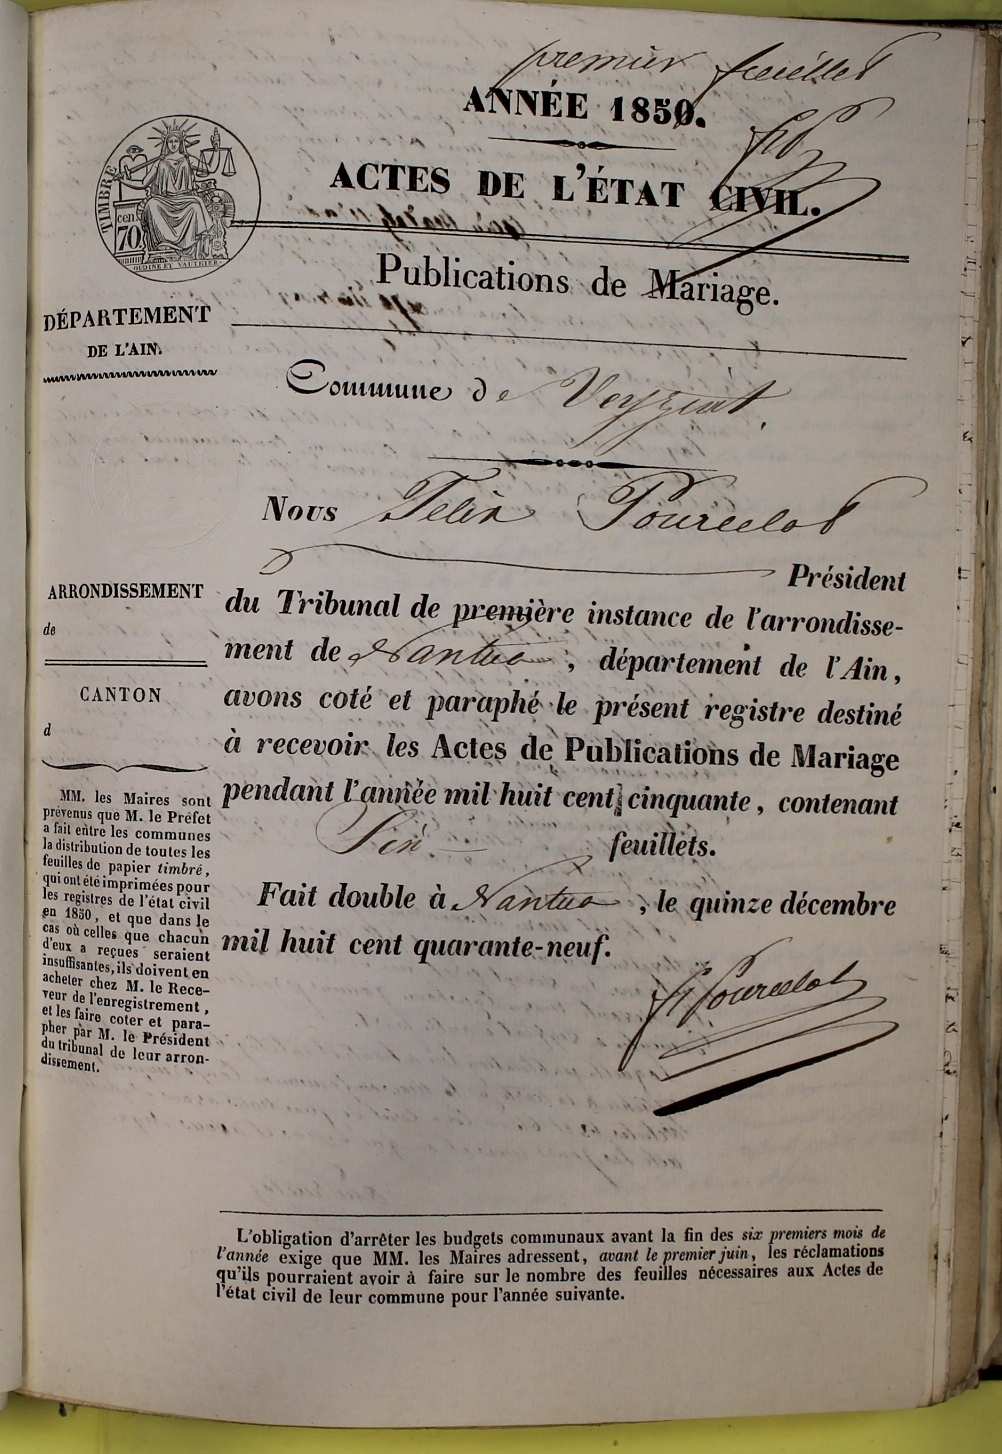 premier feuillet
ANNÉE 1850.
ACTES DE L'ÉTAT CIVIL.
TIMBRE
cen.
70
Publications de Mariage.
DÉPARTEMENT
DE L'AIN.
Commune de Veyziat
Nous Félix Pourcelot
Président
du Tribunal de première instance de l'arrondisse-
ment de Nantua, département de l'Ain,
avons coté et paraphé le présent registre destiné
à recevoir les Actes de Publications de Mariage
pendant l'année mil huit cent cinquante, contenant
feuillets.
Fait double à Nantua, le quinze décembre
mil huit cent quarante-neuf.
Pourcelot
ARRONDISSEMENT
de
CANTON
d
MM. les Maires sont
prévenus que M. le Préfet
a fait entre les communes
la distribution de toutes les
feuilles de papier timbré,
qui ont été imprimées pour
les registres de l'état civil
en 1850, et que dans le
cas où celles que chacun
d'eux a reçues seraient
insuffisantes, ils doivent en
acheter chez M. le Rece-
veur de l'enregistrement,
et les faire coter et para-
pher par M. le Président
du tribunal de leur arron-
dissement.
L'obligation d'arrêter les budgets communaux avant la fin des six premiers mois de
l'année exige que MM. les Maires adressent, avant le premier juin, les réclamations
qu'ils pourraient avoir à faire sur le nombre des feuilles nécessaires aux Actes de
l'état civil de leur commune pour l'année suivante.